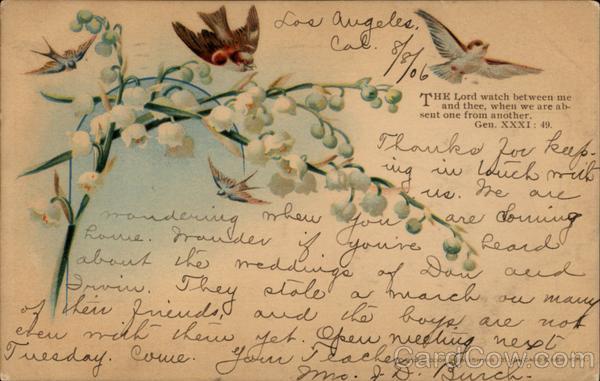 Los Angeles,
Cal. 8/8/06
THE Lord watch between me
and thee, when we are ab-
sent one from another.
Gen. XXXI: 49.
Thanks for keep-
ing in touch with
us. We are
wondering when you are coming
home. Wonder if you've heard
about the weddings of Don and
Irwin. They stole a march on many
of their friends, and the boys are not
even with them yet. Open meeting next
Tuesday. Come. Your Teacher
Mrs. J. D. Burch.
CardCow.com